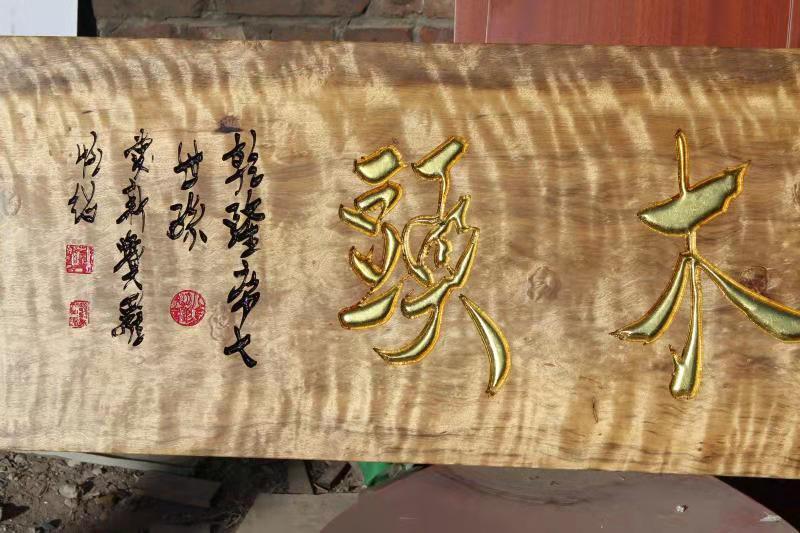 木頭
乾隆帝七
世孫
愛新覺羅